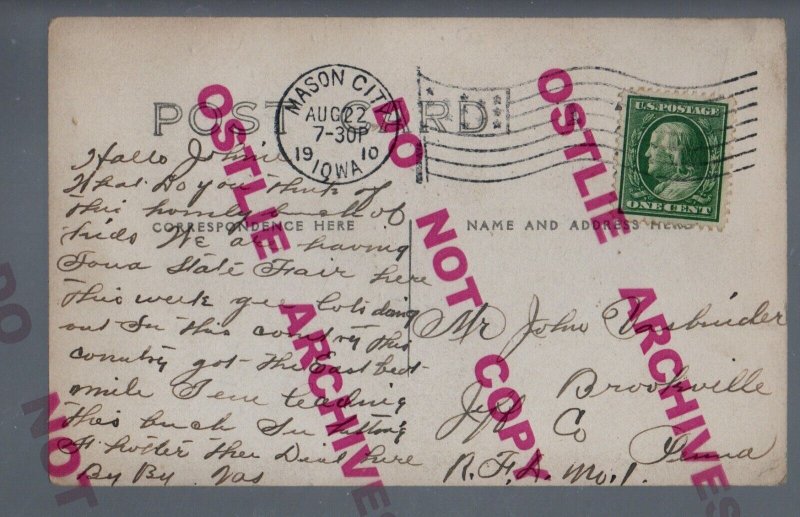 POST CARD
MASON CITY
AUG 22
7-30P
1910
IOWA
U.S. POSTAGE
ONE CENT
CORRESPONDENCE HERE
NAME AND ADDRESS HERE
Hallo Johnie
What Do you think of
this homly bunch of
kids We are having
Iowa State Fair here
this week gee lots doing
out In this country this
country got the East beat
mile I em
this buch
hotter then Dust here
By By Vas
Mr John Vasbinder
Brookville
Jeff Co
Penna
R.F.D. No. 1.
OSTLIE ARCHIVES
DO NOT COPY
OSTLIE ARCHIVES
DO NOT